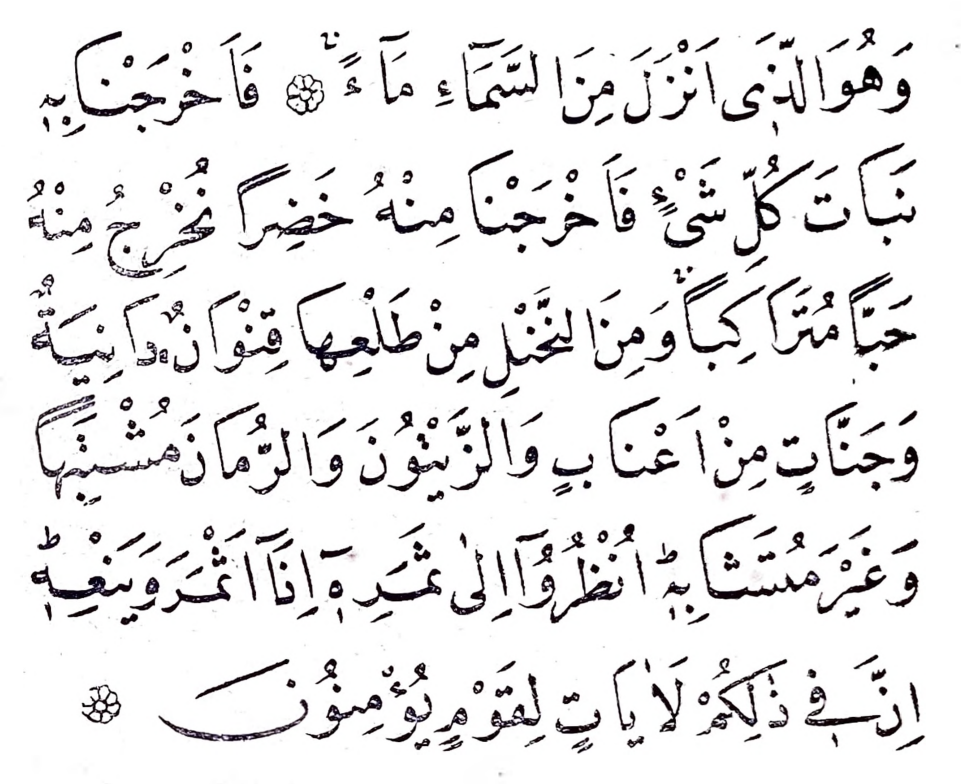 وَهُوَ الَّذ۪ى اَنْزَلَ مِنَ السَّمَٓاءِ مَٓاءًۚ فَاَخْرَجْنَا بِه۪
نَبَاتَ كُلِّ شَىْءٍ فَاَخْرَجْنَا مِنْهُ خَضِرًا نُخْرِجُ مِنْهُ
حَبًّا مُتَرَاكِبًاۚ وَمِنَ النَّخْلِ مِنْ طَلْعِهَا قِنْوَانٌ دَانِيَةٌ
وَجَنَّاتٍ مِنْ اَعْنَابٍ وَالزَّيْتُونَ وَالرُّمَّانَ مُشْتَبِهًا
وَغَيْرَ مُتَشَابِه۪ۜ اُنْظُرُٓوا اِلٰى ثَمَرِه۪ٓ اِذَٓا اَثْمَرَ وَيَنْعِه۪ۜ
اِنَّ ف۪ى ذٰلِكُمْ لَاٰيَاتٍ لِقَوْمٍ يُؤْمِنُونَ